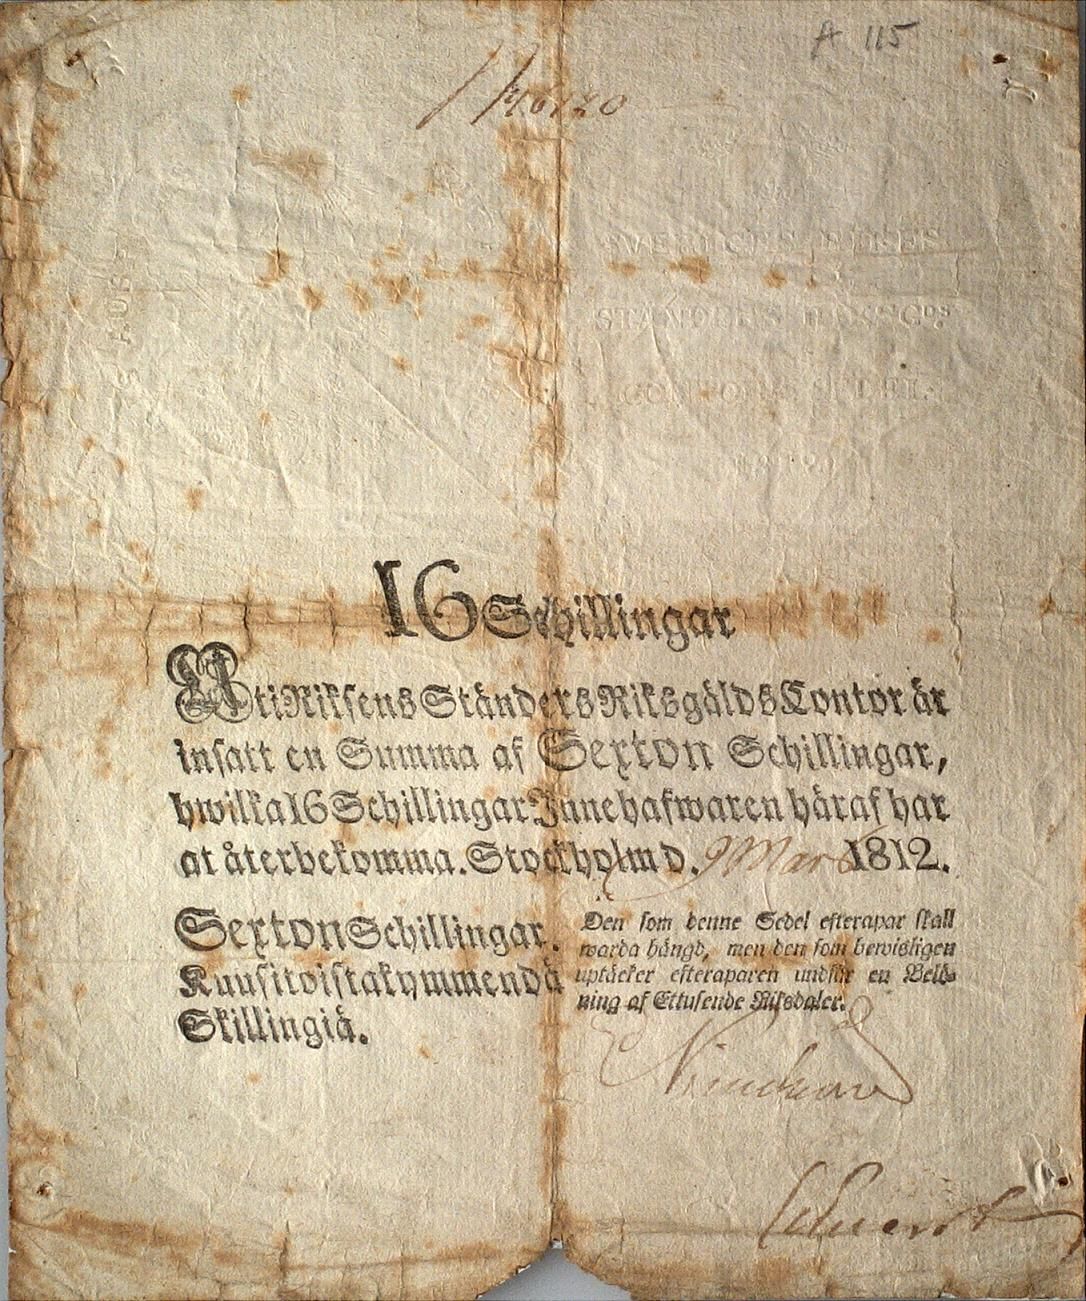 A 115
SVERIGES RIKES
STÄNDERS RIKSG:DS
CONTORS SEDEL.
16 Schillingar
Uti Riksens Ständers Riksgälds Contor är
insatt en Summa af Sexton Schillingar,
hwilka 16 Schillingar Innehafwaren häraf har
at återbekomma. Stockholm d. 9 Mars 1812.
Sexton Schillingar.
Kuusitoistakymmendä
Skillingiä.
Den som denne Sedel efterapar skall
warda hängd, men den som bewisligen
uptäcker efteraparen undfår en Belö-
ning af Ettusende Riksdaler.